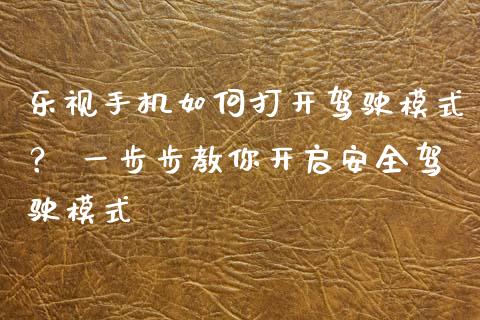 乐视手机如何打开驾驶模式
？ 一步步教你开启安全驾
驶模式